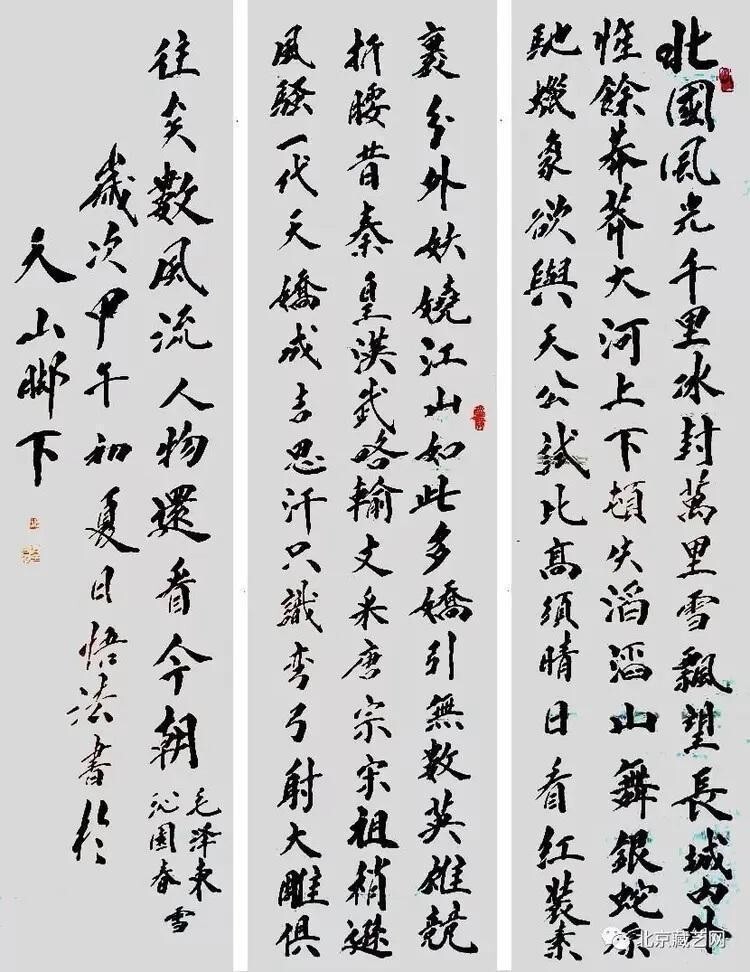 北國風光千里冰封萬里雪飄望長城内外
惟餘莽莽大河上下頓失滔滔山舞銀蛇原
馳蠟象欲與天公試比高須晴日看紅裝素
裹分外妖嬈江山如此多嬌引無數英雄競
折腰昔秦皇漢武略輸文采唐宗宋祖稍遜
風騷一代天嬌成吉思汗只識弯弓射大雕俱
往矣數風流人物還看今朝
毛泽東
沁園春雪
歲次甲午初夏日悟法書於
天山脚下
北京藏艺网